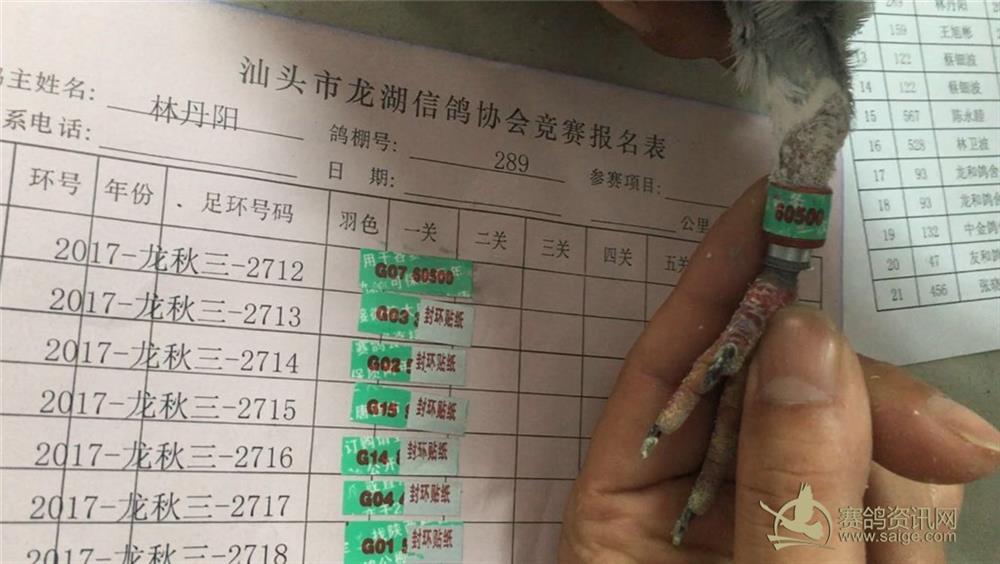 汕头市龙湖信鸽协会竞赛报名表
主姓名: 林丹阳 鸽棚号: 289 参赛项目:
系电话: 日 期: 公里
环号 年份 足环号码 羽色 一关 二关 三关 四关 五关
2017-龙秋三-2712 G07 60500
2017-龙秋三-2713 G03 封环贴纸
2017-龙秋三-2714 G02 封环贴纸
2017-龙秋三-2715 G15 封环贴纸
2017-龙秋三-2716 G14 封环贴纸
2017-龙秋三-2717 G04 封环贴纸
2017-龙秋三-2718 G01 封环贴纸
60500
289 林丹阳
159 王旭彬
13 122 蔡钿波
14 122 蔡钿波
15 567 陈永睦
16 528 林卫波
17 93 龙和鸽舍
18 93 龙和鸽
19 132 中金鸽
20 47 友和
21 456 张
赛鸽资讯网
www.saige.com